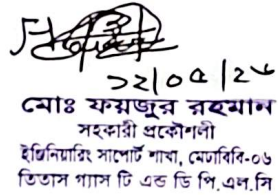 ১২/০৫/২৬
মোঃ ফয়জুর রহমান
সহকারী প্রকৌশলী
ইঞ্জিনিয়ারিং সাপোর্ট শাখা, মেঢাবিবি-০৬
তিতাস গ্যাস টি এন্ড ডি পি.এল.সি